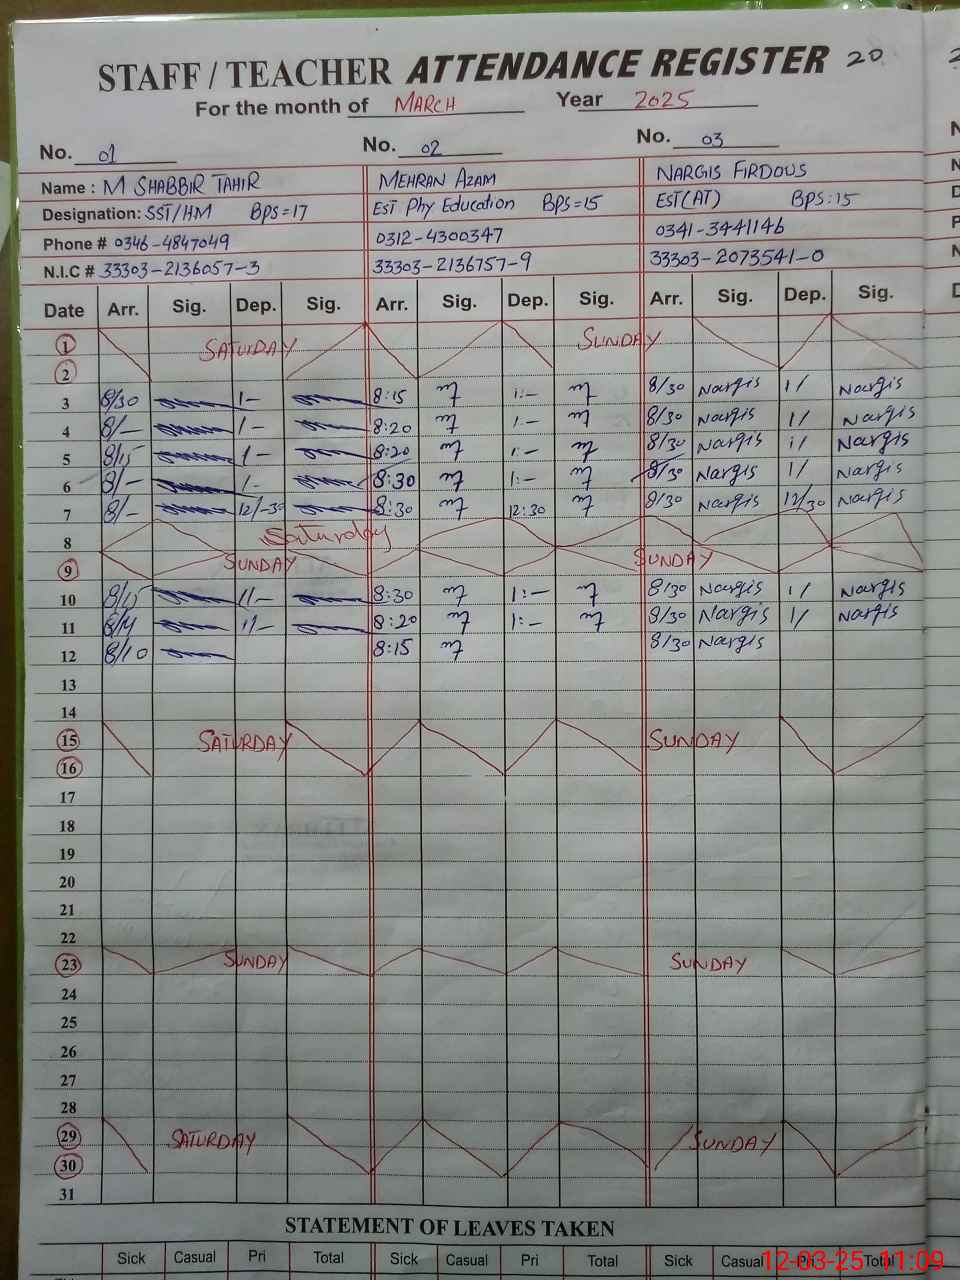 STAFF / TEACHER ATTENDANCE REGISTER 20
For the month of MARCH Year 2025
No. 01 No. 02 No. 03
Name : M SHABBIR TAHIR MEHRAN AZAM NARGIS FIRDOUS
Designation: SST/HM BPS=17 EST Phy Education BPS=15 EST(AT) BPS:15
Phone # 0346-4847049 0312-4300347 0341-3441146
N.I.C # 33303-2136057-3 33303-2136757-9 33303-2073541-0
Date Arr. Sig. Dep. Sig. Arr. Sig. Dep. Sig. Arr. Sig. Dep. Sig.
1 SATURDAY SUNDAY
2
3 8/30 1- 8:15 1:- 8/30 Nargis 1/ Nargis
4 8/- 1- 8:20 1:- 8/30 Nargis 1/ Nargis
5 8/15 1- 8:20 1:- 8/30 Nargis 1/ Nargis
6 8/- 1- 8:30 1:- 8/30 Nargis 1/ Nargis
7 8/- 12/-30 8:30 12:30 8/30 Nargis 12/30 Nargis
8 Saturday
9 SUNDAY SUNDAY
10 8/15 8:30 1:- 8/30 Nargis 1/ Nargis
11 8:20 1:- 8/30 Nargis 1/ Nargis
12 8/10 8:15 8/30 Nargis
13
14
15 SATURDAY SUNDAY
16
17
18
19
20
21
22
23 SUNDAY SUNDAY
24
25
26
27
28
29 SATURDAY SUNDAY
30
31
STATEMENT OF LEAVES TAKEN
Sick Casual Pri Total Sick Casual Pri Total Sick Casual Pri Total
12-03-25 11:09